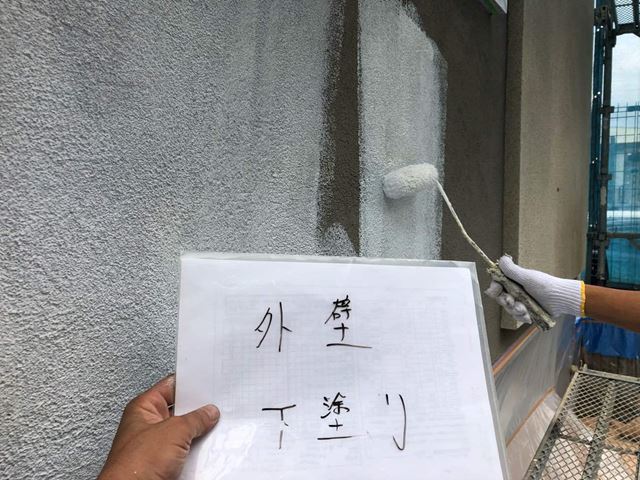 外壁
下塗り